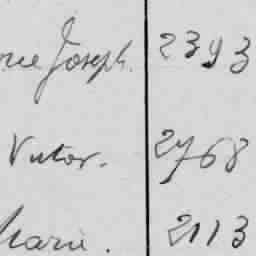 Joseph. 2393
Victor. 2768
Marie. 2113